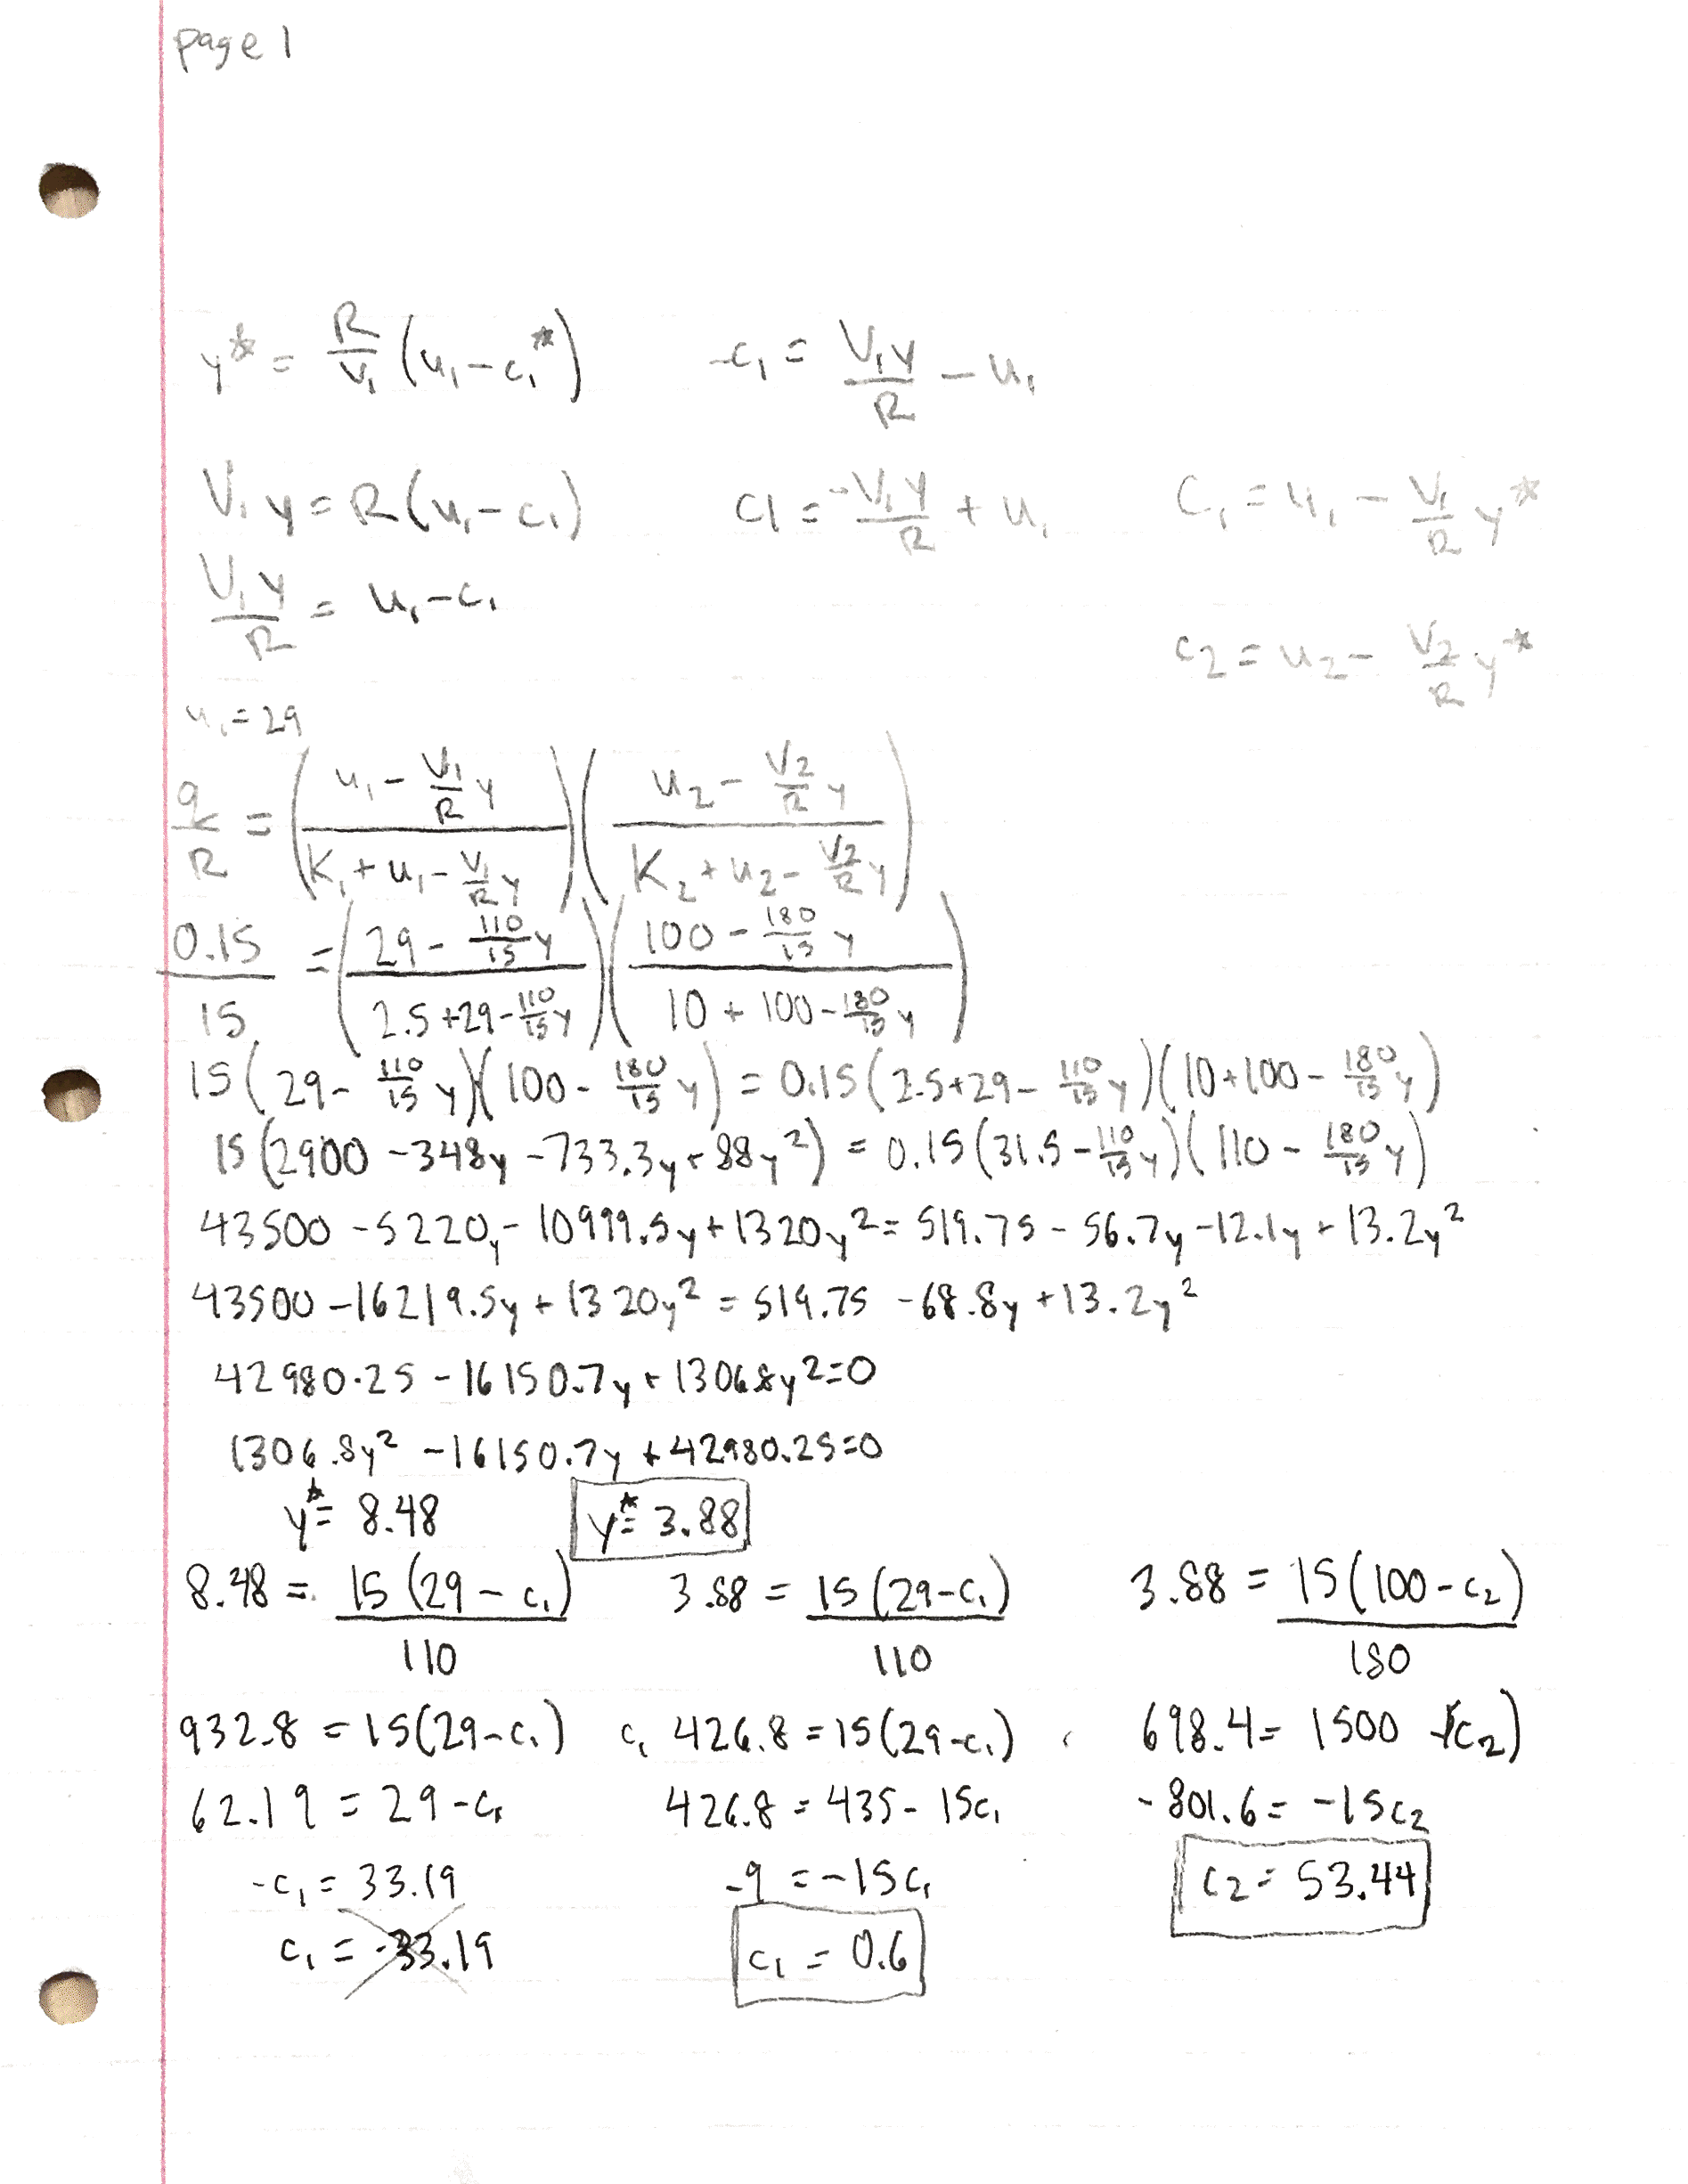 page 1
y* = R/V₁ (u₁ - c₁*)    -c₁ = V₁y/R - u₁
V₁y = R(u₁ - c₁)    c1 = -V₁y/R + u₁    C₁ = u₁ - V₁/R y*
V₁y/R = u₁ - c₁
c₂ = u₂ - V₂/R y*
u₁ = 29
q/R = ((u₁ - V₁/R y)/(K₁ + u₁ - V₁/R y)) ((u₂ - V₂/R y)/(K₂ + u₂ - V₂/R y))
0.15/15 = ((29 - 110/15 y)/(2.5 + 29 - 110/15 y)) ((100 - 180/15 y)/(10 + 100 - 180/15 y))
15(29 - 110/15 y)(100 - 180/15 y) = 0.15(2.5 + 29 - 110/15 y)(10 + 100 - 180/15 y)
15(2900 - 348y - 733.3y + 88y²) = 0.15(31.5 - 110/15 y)(110 - 180/15 y)
43500 - 5220y - 10999.5y + 1320y² = 519.75 - 56.7y - 12.1y + 13.2y²
43500 - 16219.5y + 1320y² = 519.75 - 68.8y + 13.2y²
42980.25 - 16150.7y + 1306.8y² = 0
1306.8y² - 16150.7y + 42980.25 = 0
y* = 8.48    y* = 3.88
8.48 = 15(29 - c₁)/110    3.88 = 15(29 - c₁)/110    3.88 = 15(100 - c₂)/180
932.8 = 15(29 - c₁)    c₁ 426.8 = 15(29 - c₁)    698.4 = 1500 - 15c₂)
62.19 = 29 - c₁    426.8 = 435 - 15c₁    -801.6 = -15c₂
-c₁ = 33.19    -9 = -15c₁    c₂ = 53.44
c₁ = -33.19    c₁ = 0.6